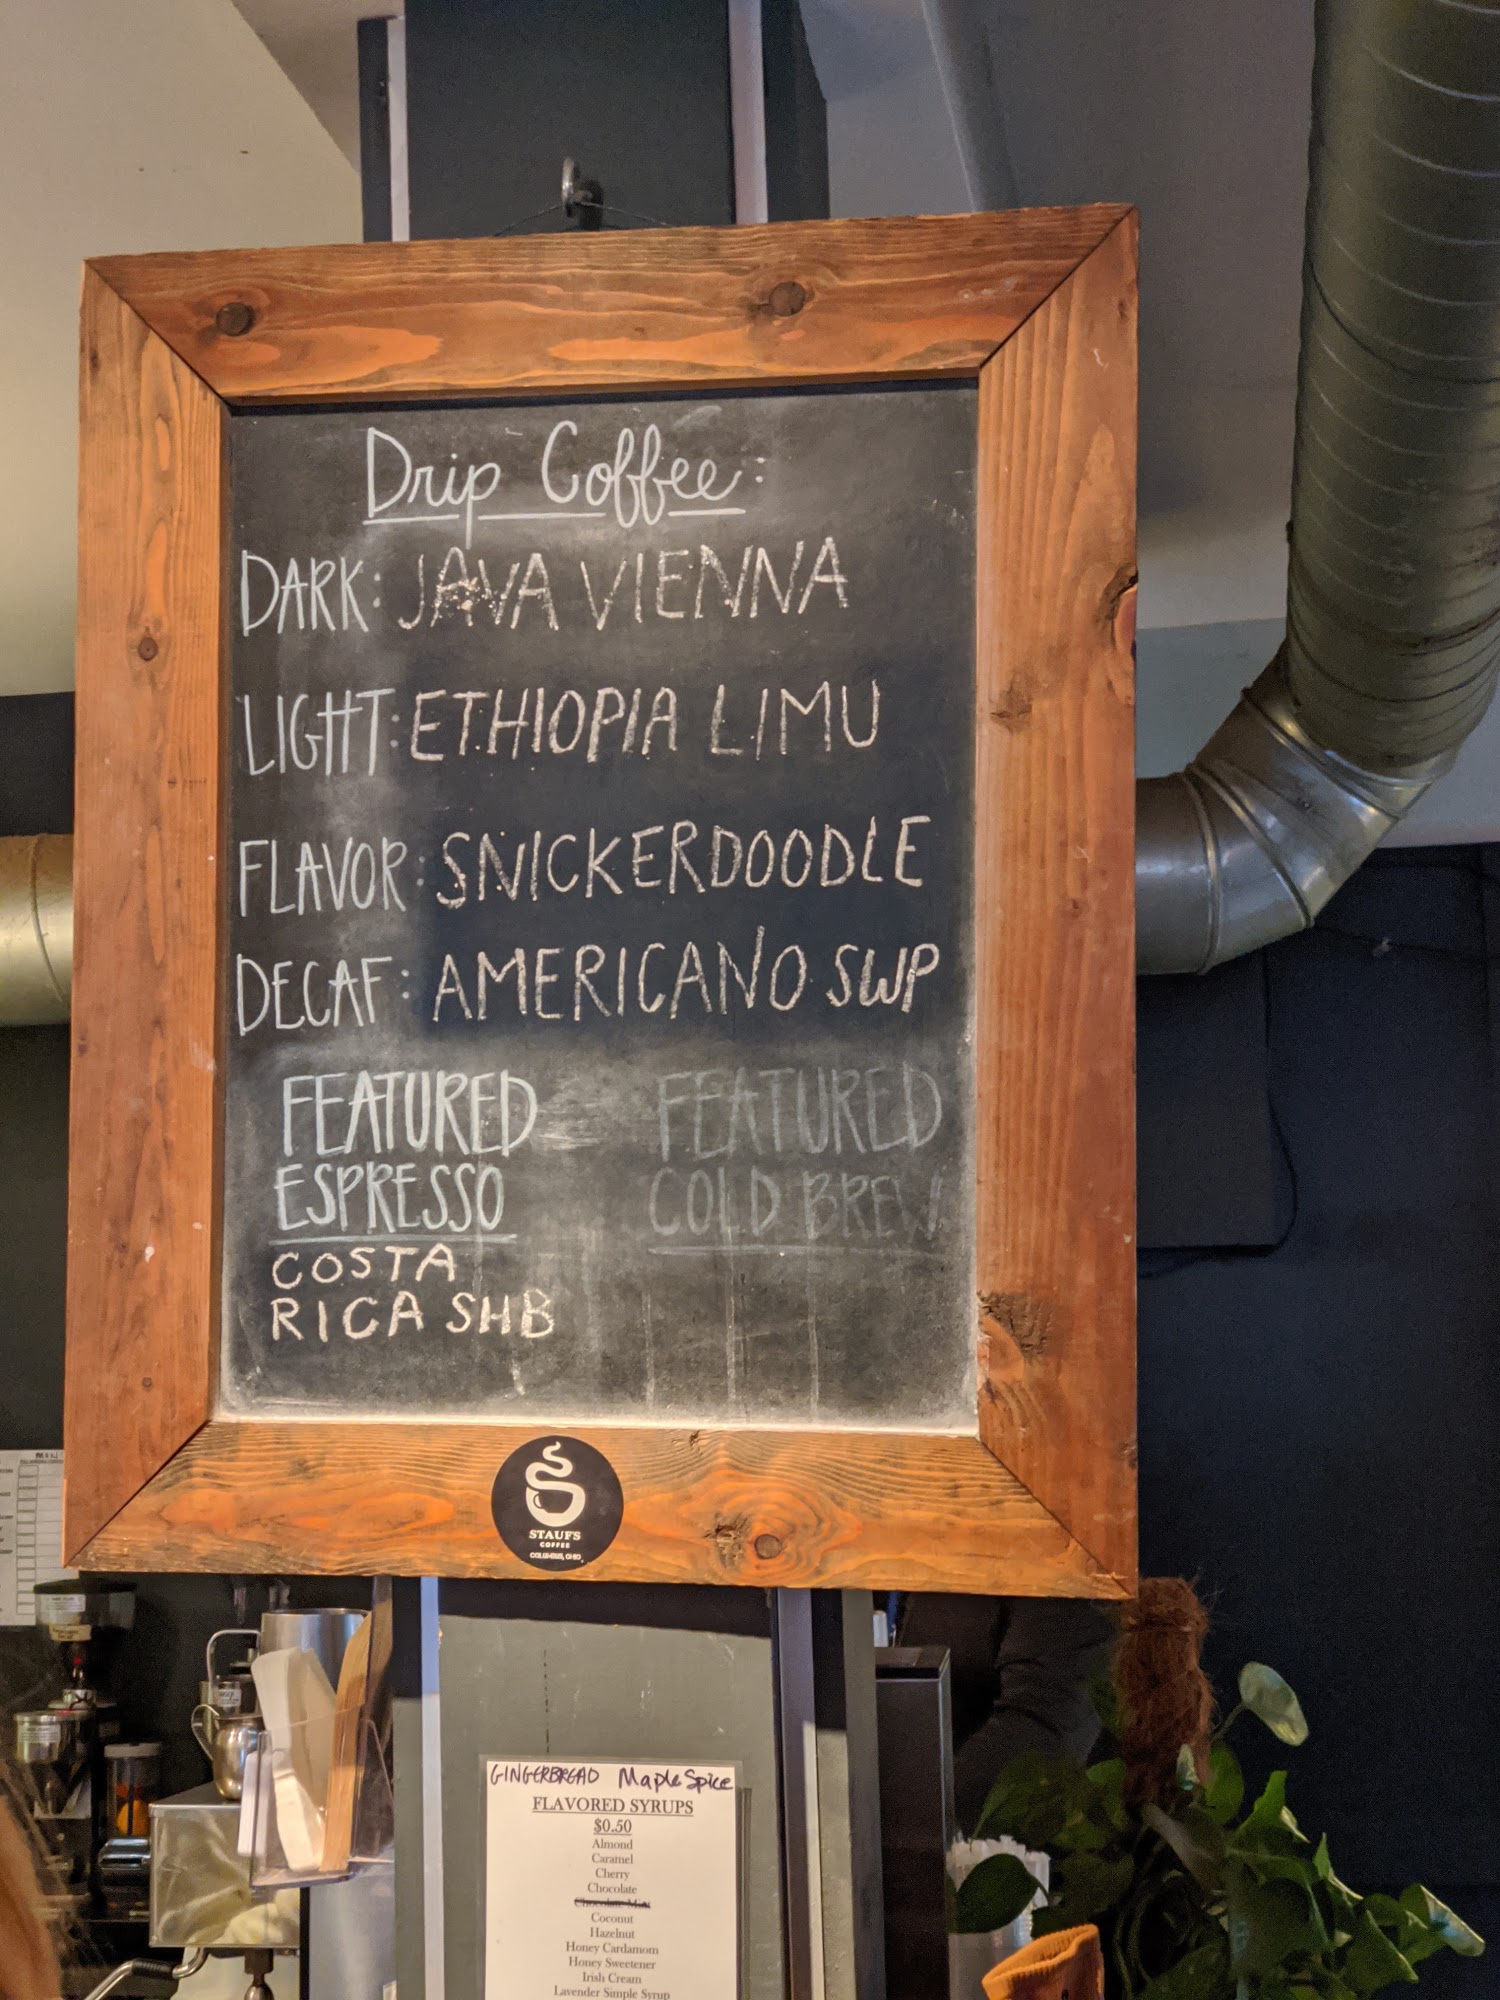 Drip Coffee:
DARK: JAVA VIENNA
LIGHT: ETHIOPIA LIMU
FLAVOR: SNICKERDOODLE
DECAF: AMERICANO SWP
FEATURED
ESPRESSO
COSTA
RICA SHB
FEATURED
COLD BREW
STAUF'S
COFFEE
COLUMBUS, OHIO
GINGERBREAD Maple Spice
FLAVORED SYRUPS
$0.50
Almond
Caramel
Cherry
Chocolate
Chocolate Mint
Coconut
Hazelnut
Honey Cardamom
Honey Sweetener
Irish Cream
Lavender Simple Syrup